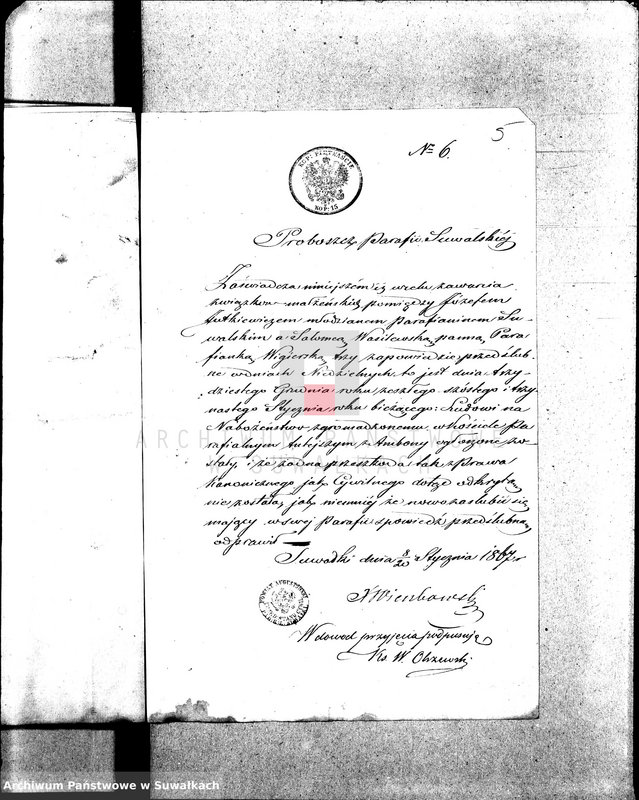 5
№ 6.
KOP. PIĘTNAŚCIE
KOP. 15
Proboszcz Parafii Suwalskiéj
Zaświadcza niniejszém iż w celu zawarcia
związków małżeńskich pomiędzy Józefem
Jutkiewiczem młodzianem Parafianinem Su-
walskim a Salomeą Wasilewską panną Para
fianką Wigierską trzy zapowiedzie przedślub-
ne w dniach Niedzielnych to jest dnia trzy-
dziestego Grudnia roku zeszłego szóstego i trzy-
nastego Stycznia roku bieżącego: Ludowi na
Nabożeństwo zgromadzonemu w kościele Pa-
rafialnym tutejszym z Ambony ogłoszone zo-
stały, i że żadna przeszkoda tak z prawa
kanonicznego jak Cywilnego dotąd odkrytą
nie została, jak niemniéj że nowozaślubić się
mający w swéj Parafii spowiedź przedślubną
odprawił
Suwałki dnia 8/20 Stycznia 1867 r
Wdowod przyjęcia podpisuję
Ks. W. Olszewski
ARCHIWUM PAŃSTWOWE
W SUWAŁKACH
Archiwum Państwowe w Suwałkach